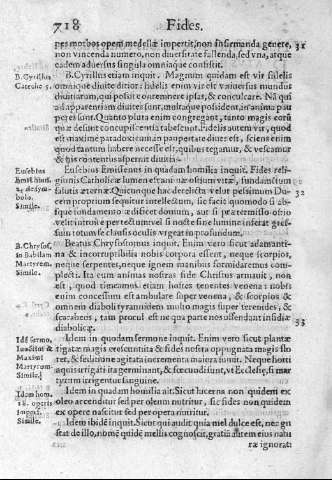 718 Fides.
pes morbos opem medellæ impertit, non infirmanda genere, 31
non vincenda numero, non diversitate fallenda, sed vna, atque
eadem adversus singula omniaque consistit.
B. Cyrillus B. Cyrillus etiam inquit. Magnum quidam est vir fidelis
omnique divite ditior: fidelis enim vir est vniversus mundus
divitiarum, qui possit contemnere ipsas, & conculcare. Nã qui
ad apparentiam divites sunt, multaque possident, in anima pau
peres sunt. Quanto plura enim congregant, tanto magis
quæ desunt concupiscentia tabescunt. fidelis autem vir, quod
est maximè paradoxum, in paupertate dives est, sciens enim
quod tantum habere necesse est, quibus tegamur, & vescamur
& his contentis aspernit divitias.
Eusebius Eusebius Emissenus in quadam homilia inquit. Fides reli-
gionis Catholicæ lumen est animæ, ostium vitæ, fundamentum
salutis æternæ. Quicunque hac derelicta velut pessimum Du- 32
symbolo. cem proprium sequitur intellectum, sic facit quomodo si abs-
Simile. que fundamento ædificet domum, aut si prætermisso ostio
velit introire per tectum si nocte sine lumine inferat gres-
sum totum se clausis oculis vrgeat in profundum.
B. Chrysos. Beatus Chrysostomus inquit. Enim vero sicut adamanti-
in Babilam na & incorruptibilis nobis corpora essent, neque scorpios,
Martyrem. neque serpentes, neque ignem manibus formidaremus com-
Simile. plecti. Ita cum animas nostras fide Christus armavit, non
est, quod timeamus etiam hostes tenentes venena: nobis
enim concessum est ambulare super venena, & scorpios &
omnem diaboli tyrannidem multo magis super serpentes, &
scarabeos, tam procul est ne qua parte nos offendant insidiæ
diabolicæ. 33
Idẽ sermo. Idem in quodam sermone inquit. Enim vero sicut plantæ
Iuvẽtini & irrigatæ magis crescunt, ita & fides nostra oppugnata magis flo
Maximi ret, & seditione agitata incrementa maiora sumit. Neque horti
Martyrum. aquis irrigati ita germinant, & fœcundi sunt, vt Ecclesiæ, si mar
Simile. tyrum irrigentur sanguine.
Idem hom. Idem in quadam homilia ait. Sicut lucerna non quidem ex
18. operis oleo accenditur sed per oleum nutritur, sic fides non quidem
imperf. ex opere nascitur sed per opera nutritur.
Simile. Idem ibidẽ inquit. Sicut qui audit quia mel dulce est, nec gu
stat de illo, nomẽ quidẽ mellis cognoscit, gratiã autem eius natu
ræ ignorat: